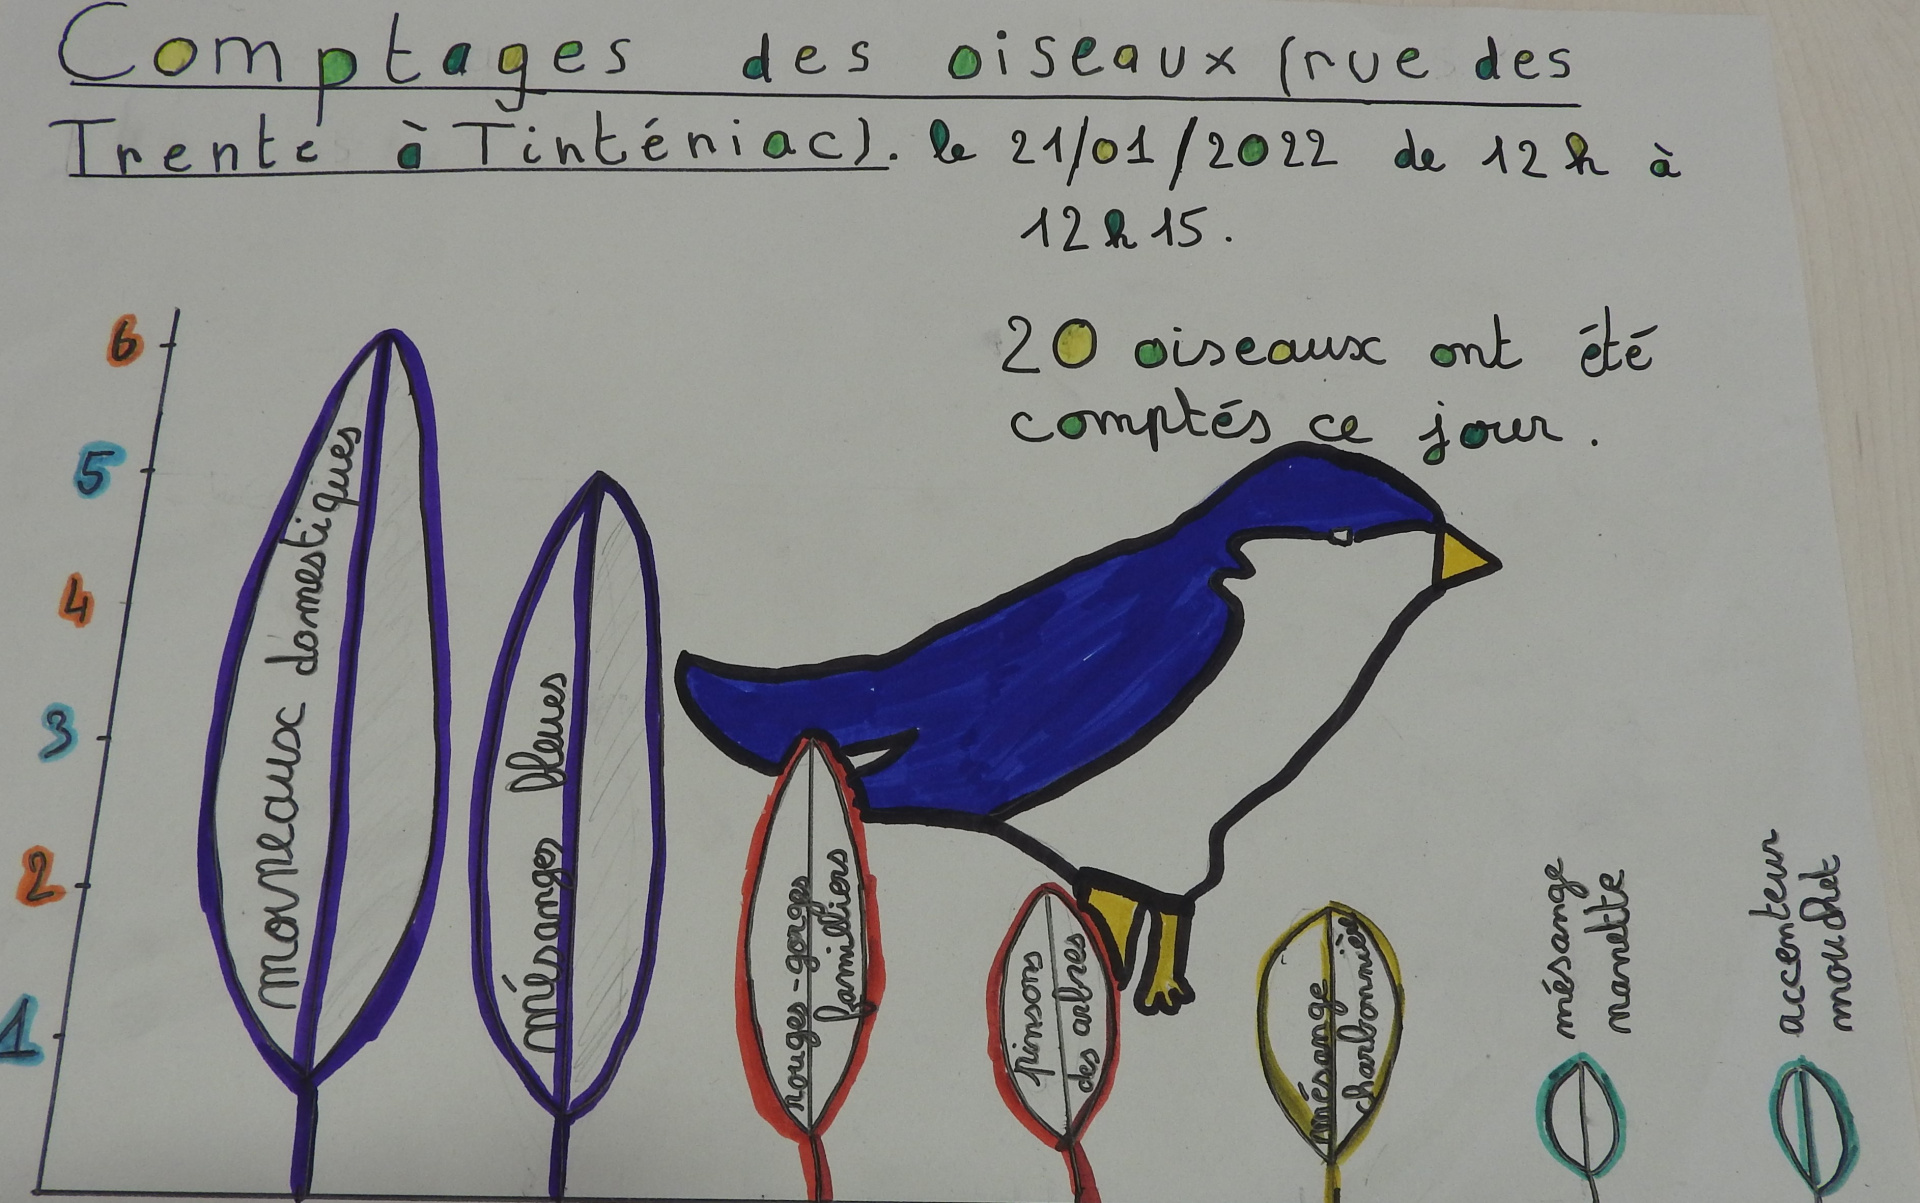 Comptages des oiseaux (rue des
Trente à Tinténiac). le 21/01/2022 de 12h à
12h15.
20 oiseaux ont été
comptés ce jour.
6
5
4
3
2
1
moineaux domestiques
mésanges bleues
rouges-gorges
familiers
pinsons
des arbres
mésange
charbonnière
mésange
nonette
accenteur
mouchet